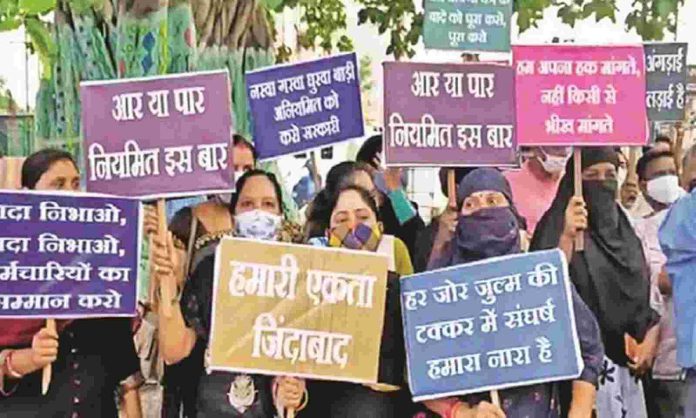 वादे को पूरा करो,
पूरा करो
आर या पार
नियमित इस बार
नरवा गरवा घुरवा बाड़ी
अनियमित को
करो सरकारी
आर या पार
नियमित इस बार
हम अपना हक मांगते,
नहीं किसी से
भीख मांगते
अंगड़ाई
लड़ाई है
ादा निभाओ,
ादा निभाओ,
र्मचारियों का
म्मान करो
हमारी एकता
जिंदाबाद
हर जोर जुल्म की
टक्कर में संघर्ष
हमारा नारा है